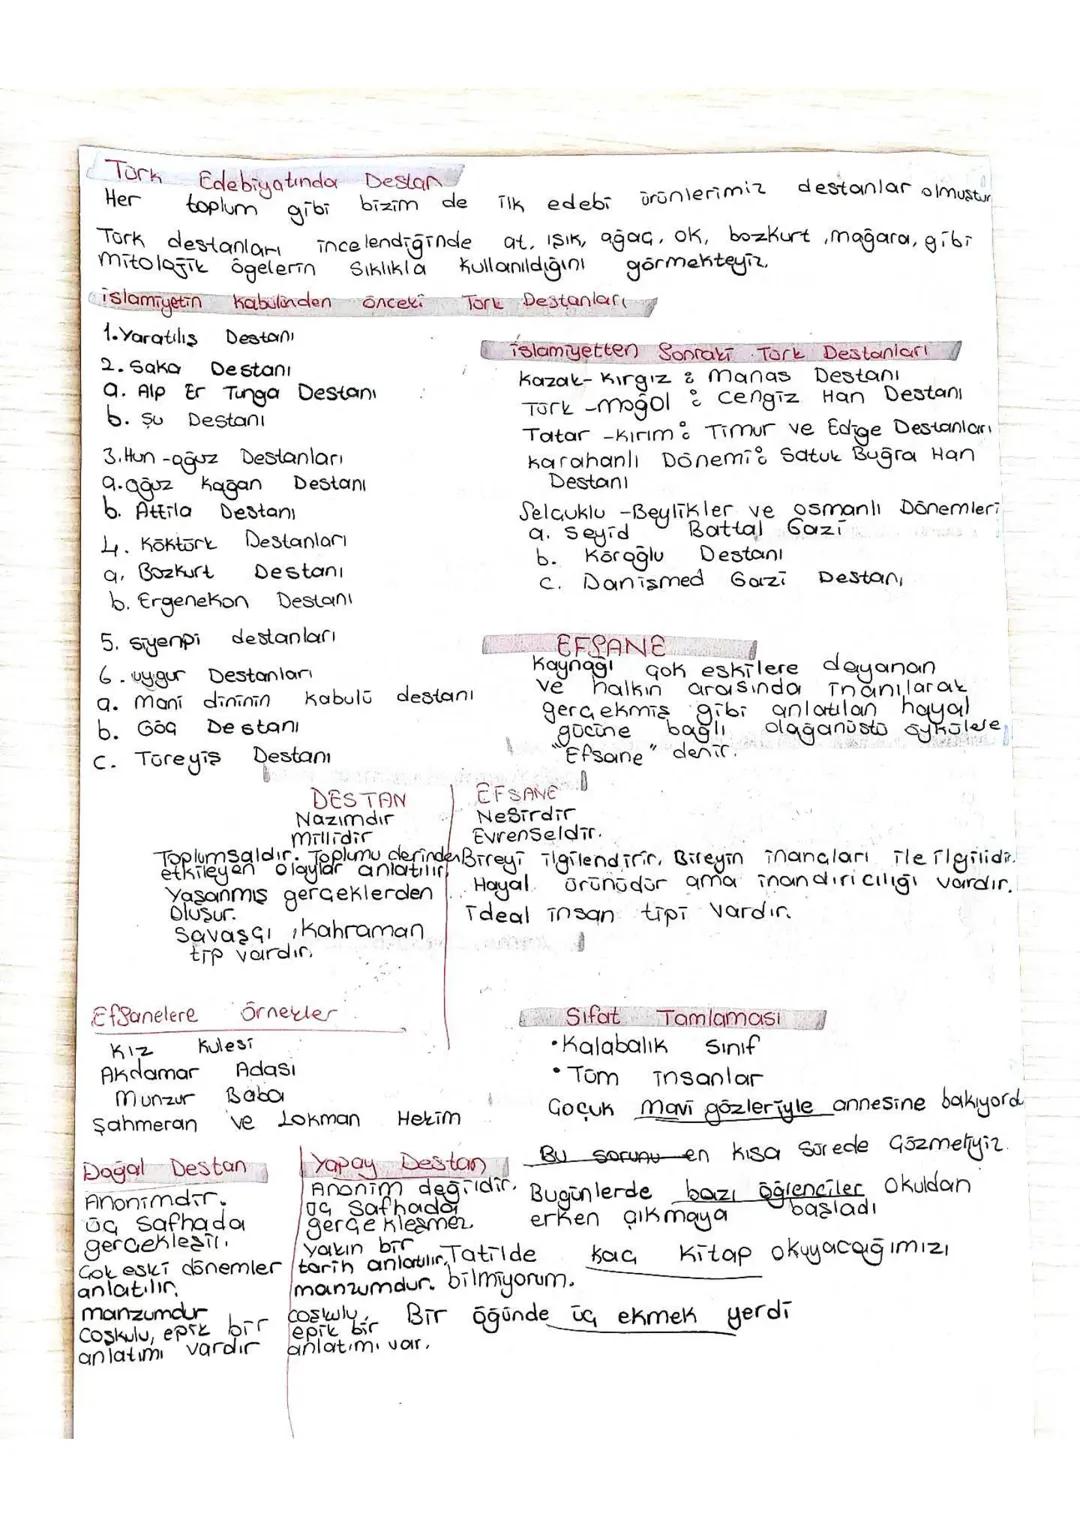 Türk Edebiyatında Destan
Her toplum gibi bizim de ilk edebi ürünlerimiz destanlar olmuştur
Türk destanları incelendiğinde at, ışık, ağaç, ok, bozkurt, mağara, gibi
mitolojik ögelerin sıklıkla kullanıldığını görmekteyiz.
islamiyetin kabulünden önceki Türk Destanları
1. Yaratılış Destanı
2. Saka Destanı
a. Alp Er Tunga Destanı
b. Şu Destanı
3. Hun-oğuz Destanları
a. oğuz kağan Destanı
b. Attila Destanı
4. Köktürk Destanları
a. Bozkurt Destanı
b. Ergenekon Destanı
5. siyenpi destanları
6. uygur Destanları
a. mani dininin kabulü destanı
b. Göç Destanı
c. Türeyiş Destanı
islamiyetten Sonraki Türk Destanları
Kazak-Kırgız: manas Destanı
Türk-moğol: cengiz Han Destanı
Tatar-Kırım: Timur ve Edige Destanları
karahanlı Dönemi: Satuk Buğra Han
Destanı
Selçuklu-Beylikler ve osmanlı Dönemleri
a. Seyid Battal Gazi
b. Köroğlu Destanı
c. Danişmed Gazi Destanı
EFSANE
Kaynağı çok eskilere dayanan
ve halkın arasında inanılarak
gerçekmiş gibi anlatılan hayal
gücüne bağlı olağanüstü öykülere
"Efsane" denir.
DESTAN
Nazımdır
millidir
Toplumsaldır. Toplumu derinden
etkileyen olaylar anlatılır.
Yaşanmış gerçeklerden
oluşur.
Savaşçı, kahraman
tip vardır.
EFSANE
Nesirdir
Evrenseldir.
Bireyi ilgilendirir. Bireyin inançları ile ilgilidir.
Hayal ürünüdür ama inandırıcılığı vardır.
ideal insan tipi vardır.
Efsanelere Örnekler
Kız Kulesi
Akdamar Adası
Munzur Baba
Şahmeran ve Lokman Hekim
Sıfat Tamlaması
• Kalabalık sınıf
• Tüm insanlar
Çoçuk mavi gözleriyle annesine bakıyord
Bu sorunu en kısa sürede çözmeliyiz.
Bugünlerde bazı öğrenciler okuldan
erken çıkmaya başladı
Tatilde kaç kitap okuyacağımızı
bilmiyorum.
Bir öğünde üç ekmek yerdi
Doğal Destan
Anonimdir.
üç Safhada
gerçekleşir.
Çok eski dönemler
anlatılır.
manzumdur
Coşkulu, epik bir
anlatımı vardır
Yapay Destan
Anonim değildir.
üç Safhada
gerçekleşmez.
yakın bir
tarih anlatılır.
manzumdur.
coşkulu,
epik bir
anlatımı var.